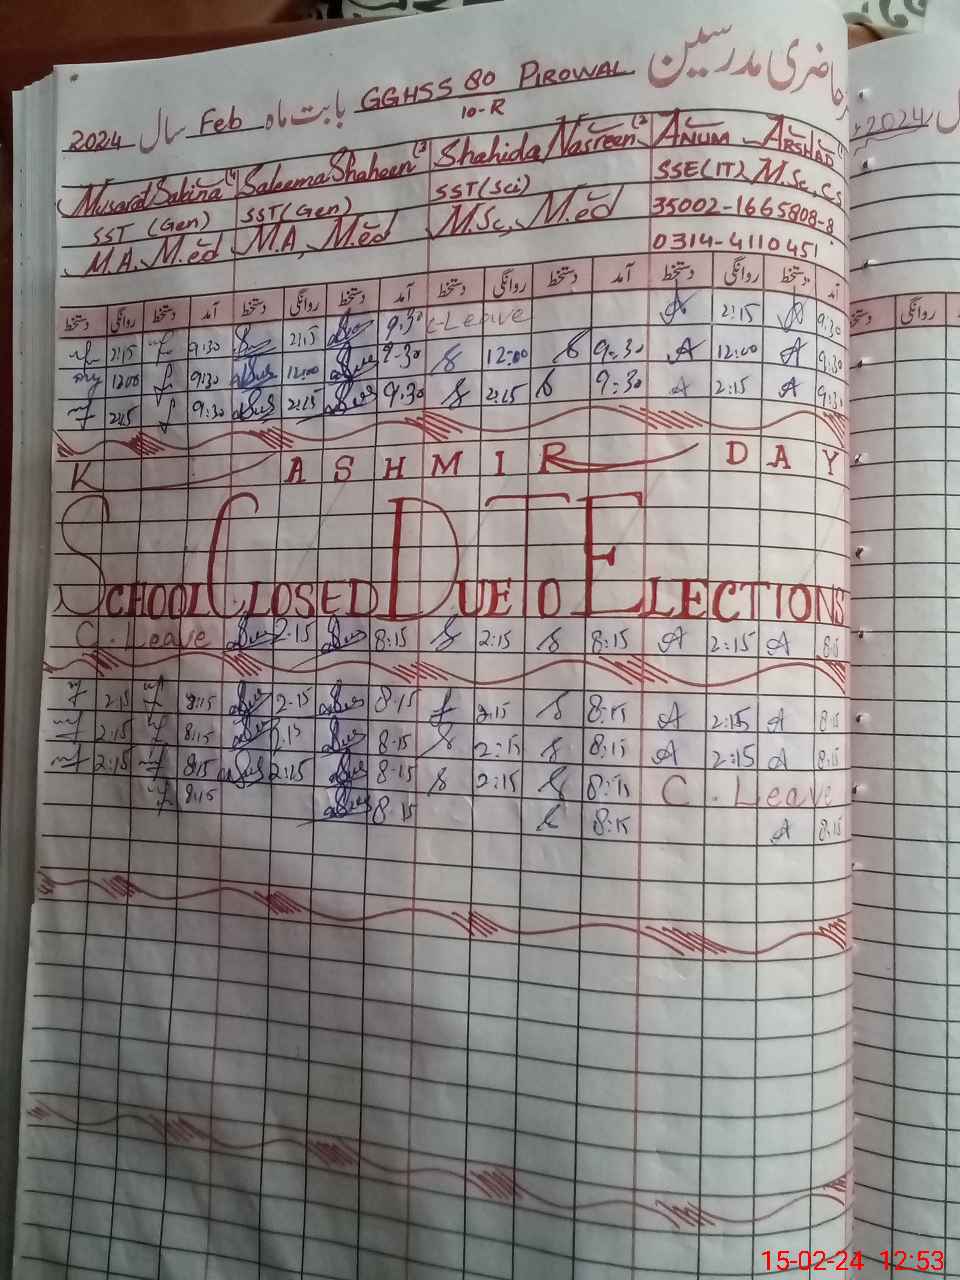 حاضری مدرسین GGHSS 80 PIROWAL بابت ماہ Feb سال 2024
10-R
ANUM ARSHAD (1 Shahida Nasreen (2 Saleema Shaheen (3 Musarat Sabina (4
SSE(IT) M.Sc, C.S SST(Sci) SST(Gen) SST (Gen)
35002-1665808-8 M.Sc, M.ed M.A, M.ed M.A. M.ed
0314-4110451
آمد دستخط روانگی دستخط آمد دستخط روانگی دستخط آمد دستخط روانگی دستخط آمد دستخط روانگی دستخط
2:15 9:30 2:15 9:30 C-Leave 2:15 9:30
12:00 9:30 12:00 9:30 12:00 9:30 12:00 9:30
2:15 9:30 2:15 9:30 2:15 9:30 2:15 9:30
KASHMIR DAY
SCHOOL CLOSED DUE TO ELECTIONS
C. Leave 2:15 8:15 2:15 8:15 2:15 8:15
2:15 8:15 2:15 8:15 2:15 8:15 2:15 8:15
2:15 8:15 2:15 8:15 2:15 8:15 2:15 8:15
2:15 8:15 2:15 8:15 2:15 8:15 C. Leave
8:15 8:15 8:15 8:15
2024
روانگی
15-02-24 12:53